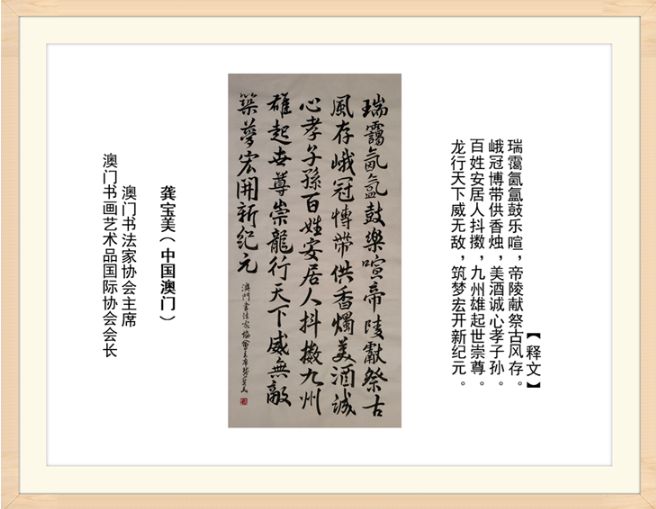 【释文】
瑞霭氤氲鼓乐喧，帝陵献祭古风存。
峨冠博带供香烛，美酒诚心孝子孙。
百姓安居人抖擞，九州雄起世崇尊。
龙行天下威无敌，筑梦宏开新纪元。
瑞靄氤氳鼓樂喧帝陵獻祭古
風存峨冠博帶供香燭美酒誠
心孝子孫百姓安居人抖擻九州
雄起世尊崇龍行天下威無敵
築夢宏開新紀元
澳門書法家協會主席龔寶美
龚宝美（中国澳门）
澳门书法家协会主席
澳门书画艺术品国际协会会长